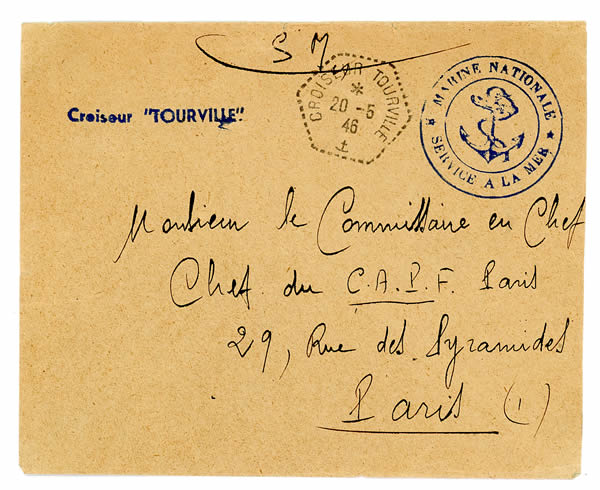 S M
CROISEUR TOURVILLE
20 - 5
46
MARINE NATIONALE
* SERVICE A LA MER *
Croiseur "TOURVILLE"
Monsieur le Commissaire en Chef
Chef du C.A.P.F. Paris
29, Rue des Pyramides
Paris (1)